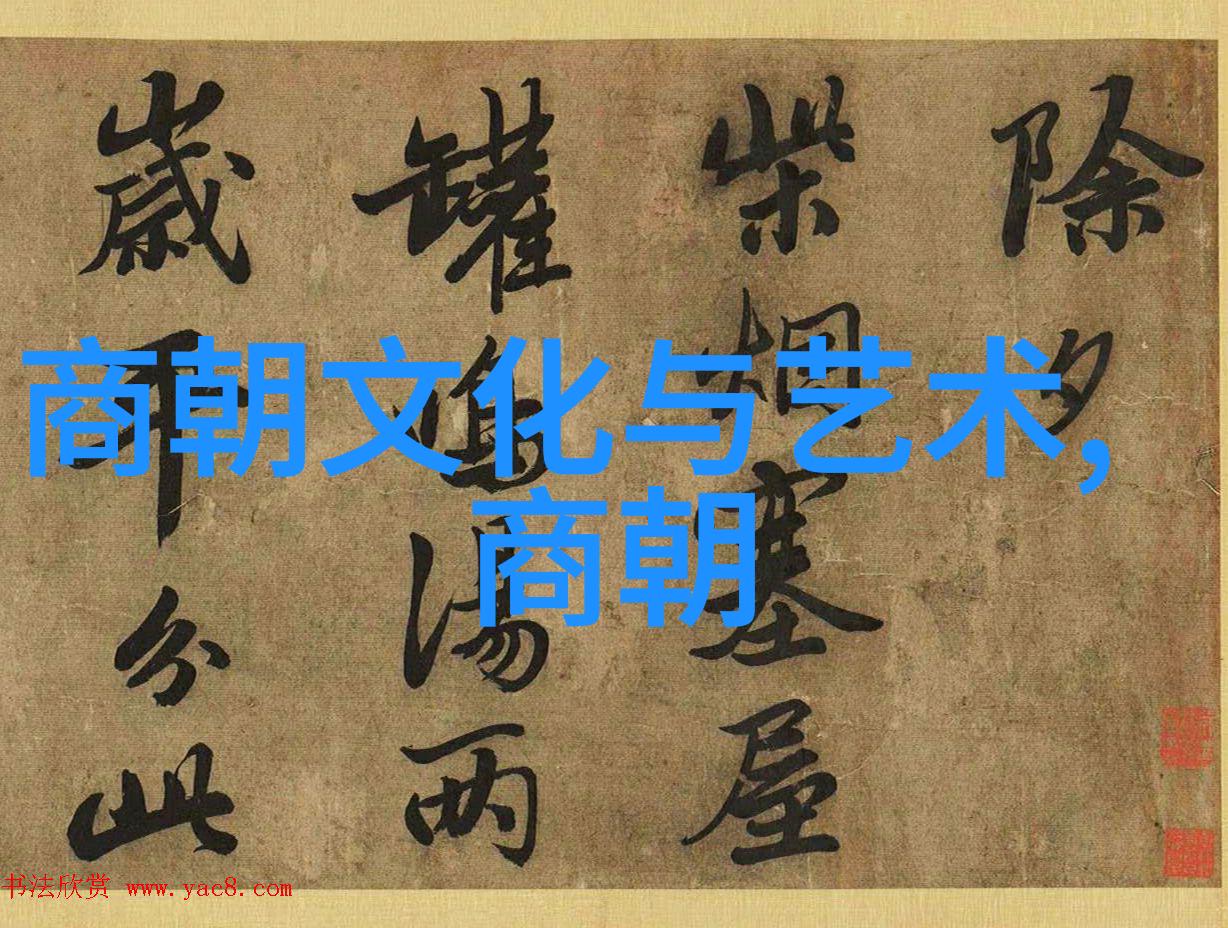 除夕
柴烟塞屋
罐鳴湯两
歲平分此
商朝文化与艺术,
商朝
书法欣赏 www.yac8.com